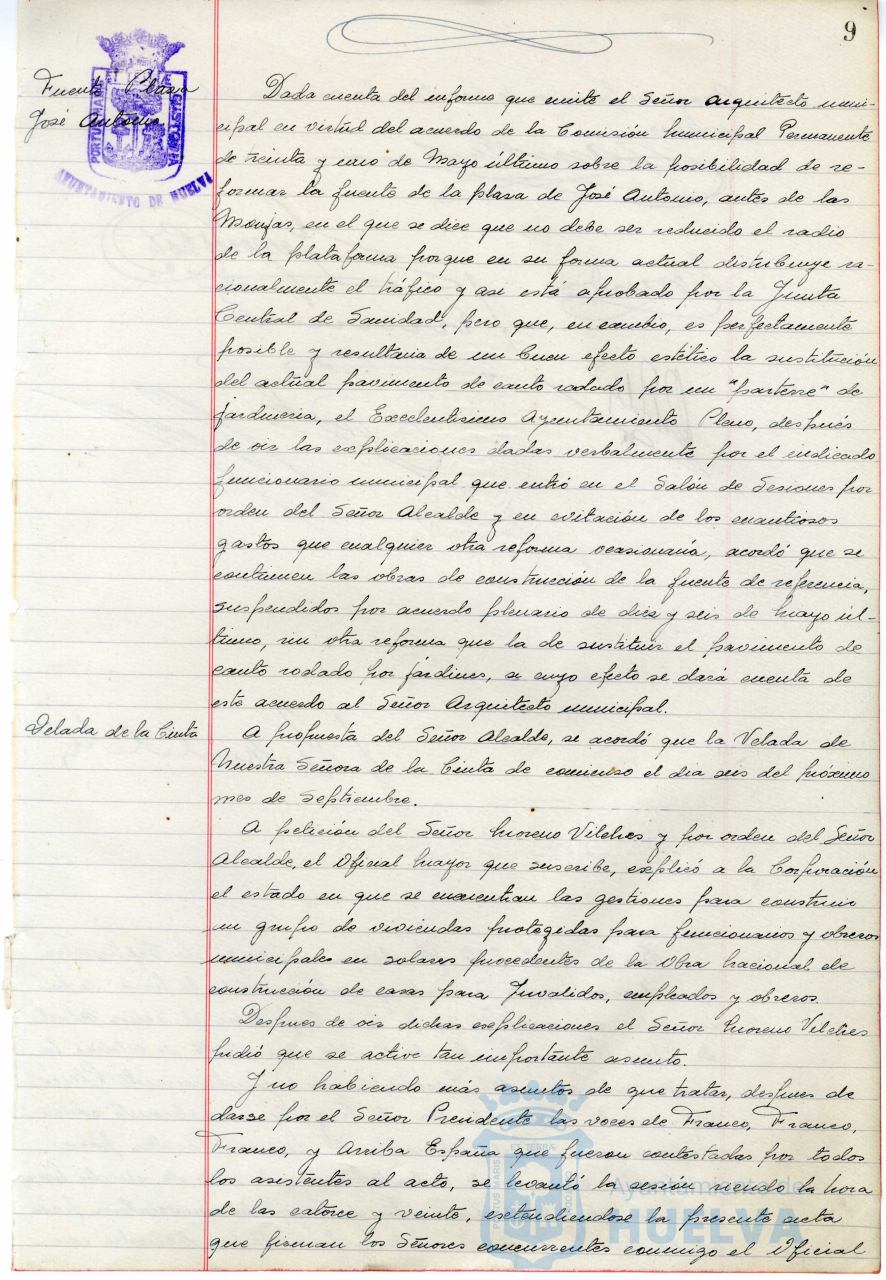 9
Fuente Plaza
José Antonio
PORTUS MARIS ET TERRAE CUSTODIA
AYUNTAMIENTO DE HUELVA
Dada cuenta del informe que emite el Señor Arquitecto muni-
cipal en virtud del acuerdo de la Comisión Municipal Permanente
de treinta y uno de Mayo último sobre la posibilidad de re-
formar la fuente de la plaza de José Antonio, antes de las
Monjas, en el que se dice que no debe ser reducido el radio
de la plataforma porque en su forma actual distribuye ra-
cionalmente el tráfico y asi está aprobado por la Junta
Central de Sanidad, pero que, en cambio, es perfectamente
posible y resultaria de un buen efecto estético la sustitución
del actual pavimento de canto rodado por un "parterre" de
jardineria, el Excelentisimo Ayuntamiento Pleno, después
de oir las explicaciones dadas verbalmente por el indicado
funcionario municipal que entró en el Salón de Sesiones por
orden del Señor Alcalde y en evitación de los cuantiosos
gastos que cualquier otra reforma ocasionaria, acordó que se
continuen las obras de construcción de la fuente de referencia,
suspendidos por acuerdo plenario de diez y seis de Mayo úl-
timo, sin otra reforma que la de sustituir el pavimento de
canto rodado por jardines, a cuyo efecto se dará cuenta de
este acuerdo al Señor Arquitecto municipal.
Velada de la Cinta
A propuesta del Señor Alcalde, se acordó que la Velada de
Nuestra Señora de la Cinta de comienso el dia seis del próximo
mes de Septiembre.
A petición del Señor Moreno Vilches y por orden del Señor
Alcalde, el Oficial Mayor que suscribe, explicó a la Corporación
el estado en que se encuentran las gestiones para construir
un grupo de viviendas protegidas para funcionarios y obreros
municipales en solares procedentes de la Obra Nacional de
construcción de casas para Invalidos, empleados y obreros.
Despues de oir dichas explicaciones el Señor Moreno Vilches
pidió que se active tan importante asunto.
Y no habiendo más asuntos de que tratar, despues de
darse por el Señor Presidente las voces de Franco, Franco,
Franco, y Arriba España que fueron contestadas por todos
los asistentes al acto, se levantó la sesión siendo la hora
de las catorce y veinte, extendiendose la presente acta
que firman los Señores concurrentes conmigo el Oficial
Ayuntamiento de
HUELVA